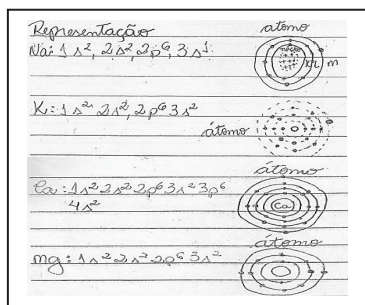 Representação átomo
Na: 1s², 2s², 2p⁶, 3s¹
K L m
K: 1s² 2s², 2p⁶ 3s²
átomo
átomo
Ca: 1s² 2s² 2p⁶ 3s² 3p⁶
4s²
Ca
átomo
mg: 1s² 2s² 2p⁶ 3s²